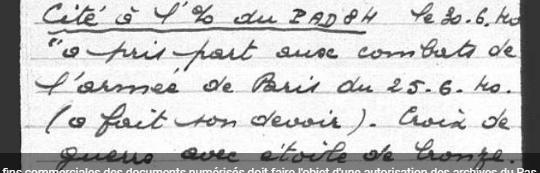 Cité à l'% du PAD 84 le 30.6.40
"a pris part aux combats de
l'armée de Paris du 25.6.40.
(a fait son devoir). Croix de
guerre avec étoile de bronze.
fins commerciales des documents numérisés doit faire l'objet d'une autorisation des archives du Pas